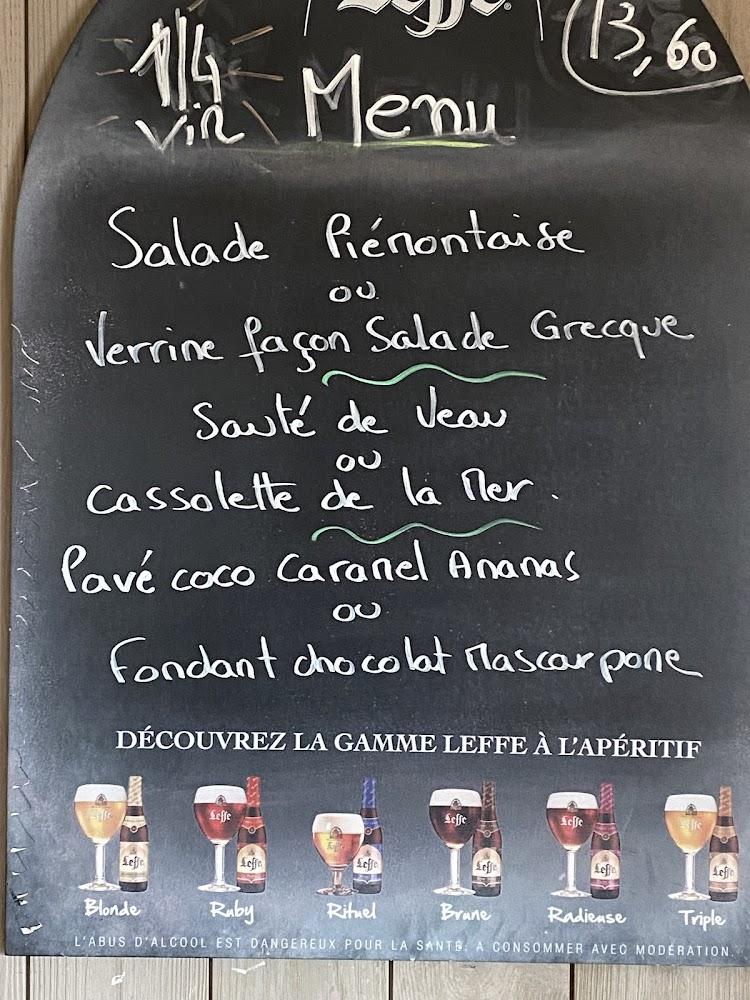 Leffe
1/4
vin
Menu
13,60
Salade Piémontaise
ou
Verrine façon Salade Grecque
Sauté de Veau
ou
Cassolette de la Mer.
Pavé coco Caramel Ananas
ou
Fondant chocolat Mascarpone
DÉCOUVREZ LA GAMME LEFFE À L'APÉRITIF
Leffe Leffe Leffe Leffe Leffe Leffe Leffe Leffe Leffe Leffe Leffe Leffe
Blonde Ruby Rituel Brune Radieuse Triple
L'ABUS D'ALCOOL EST DANGEREUX POUR LA SANTÉ. A CONSOMMER AVEC MODÉRATION.